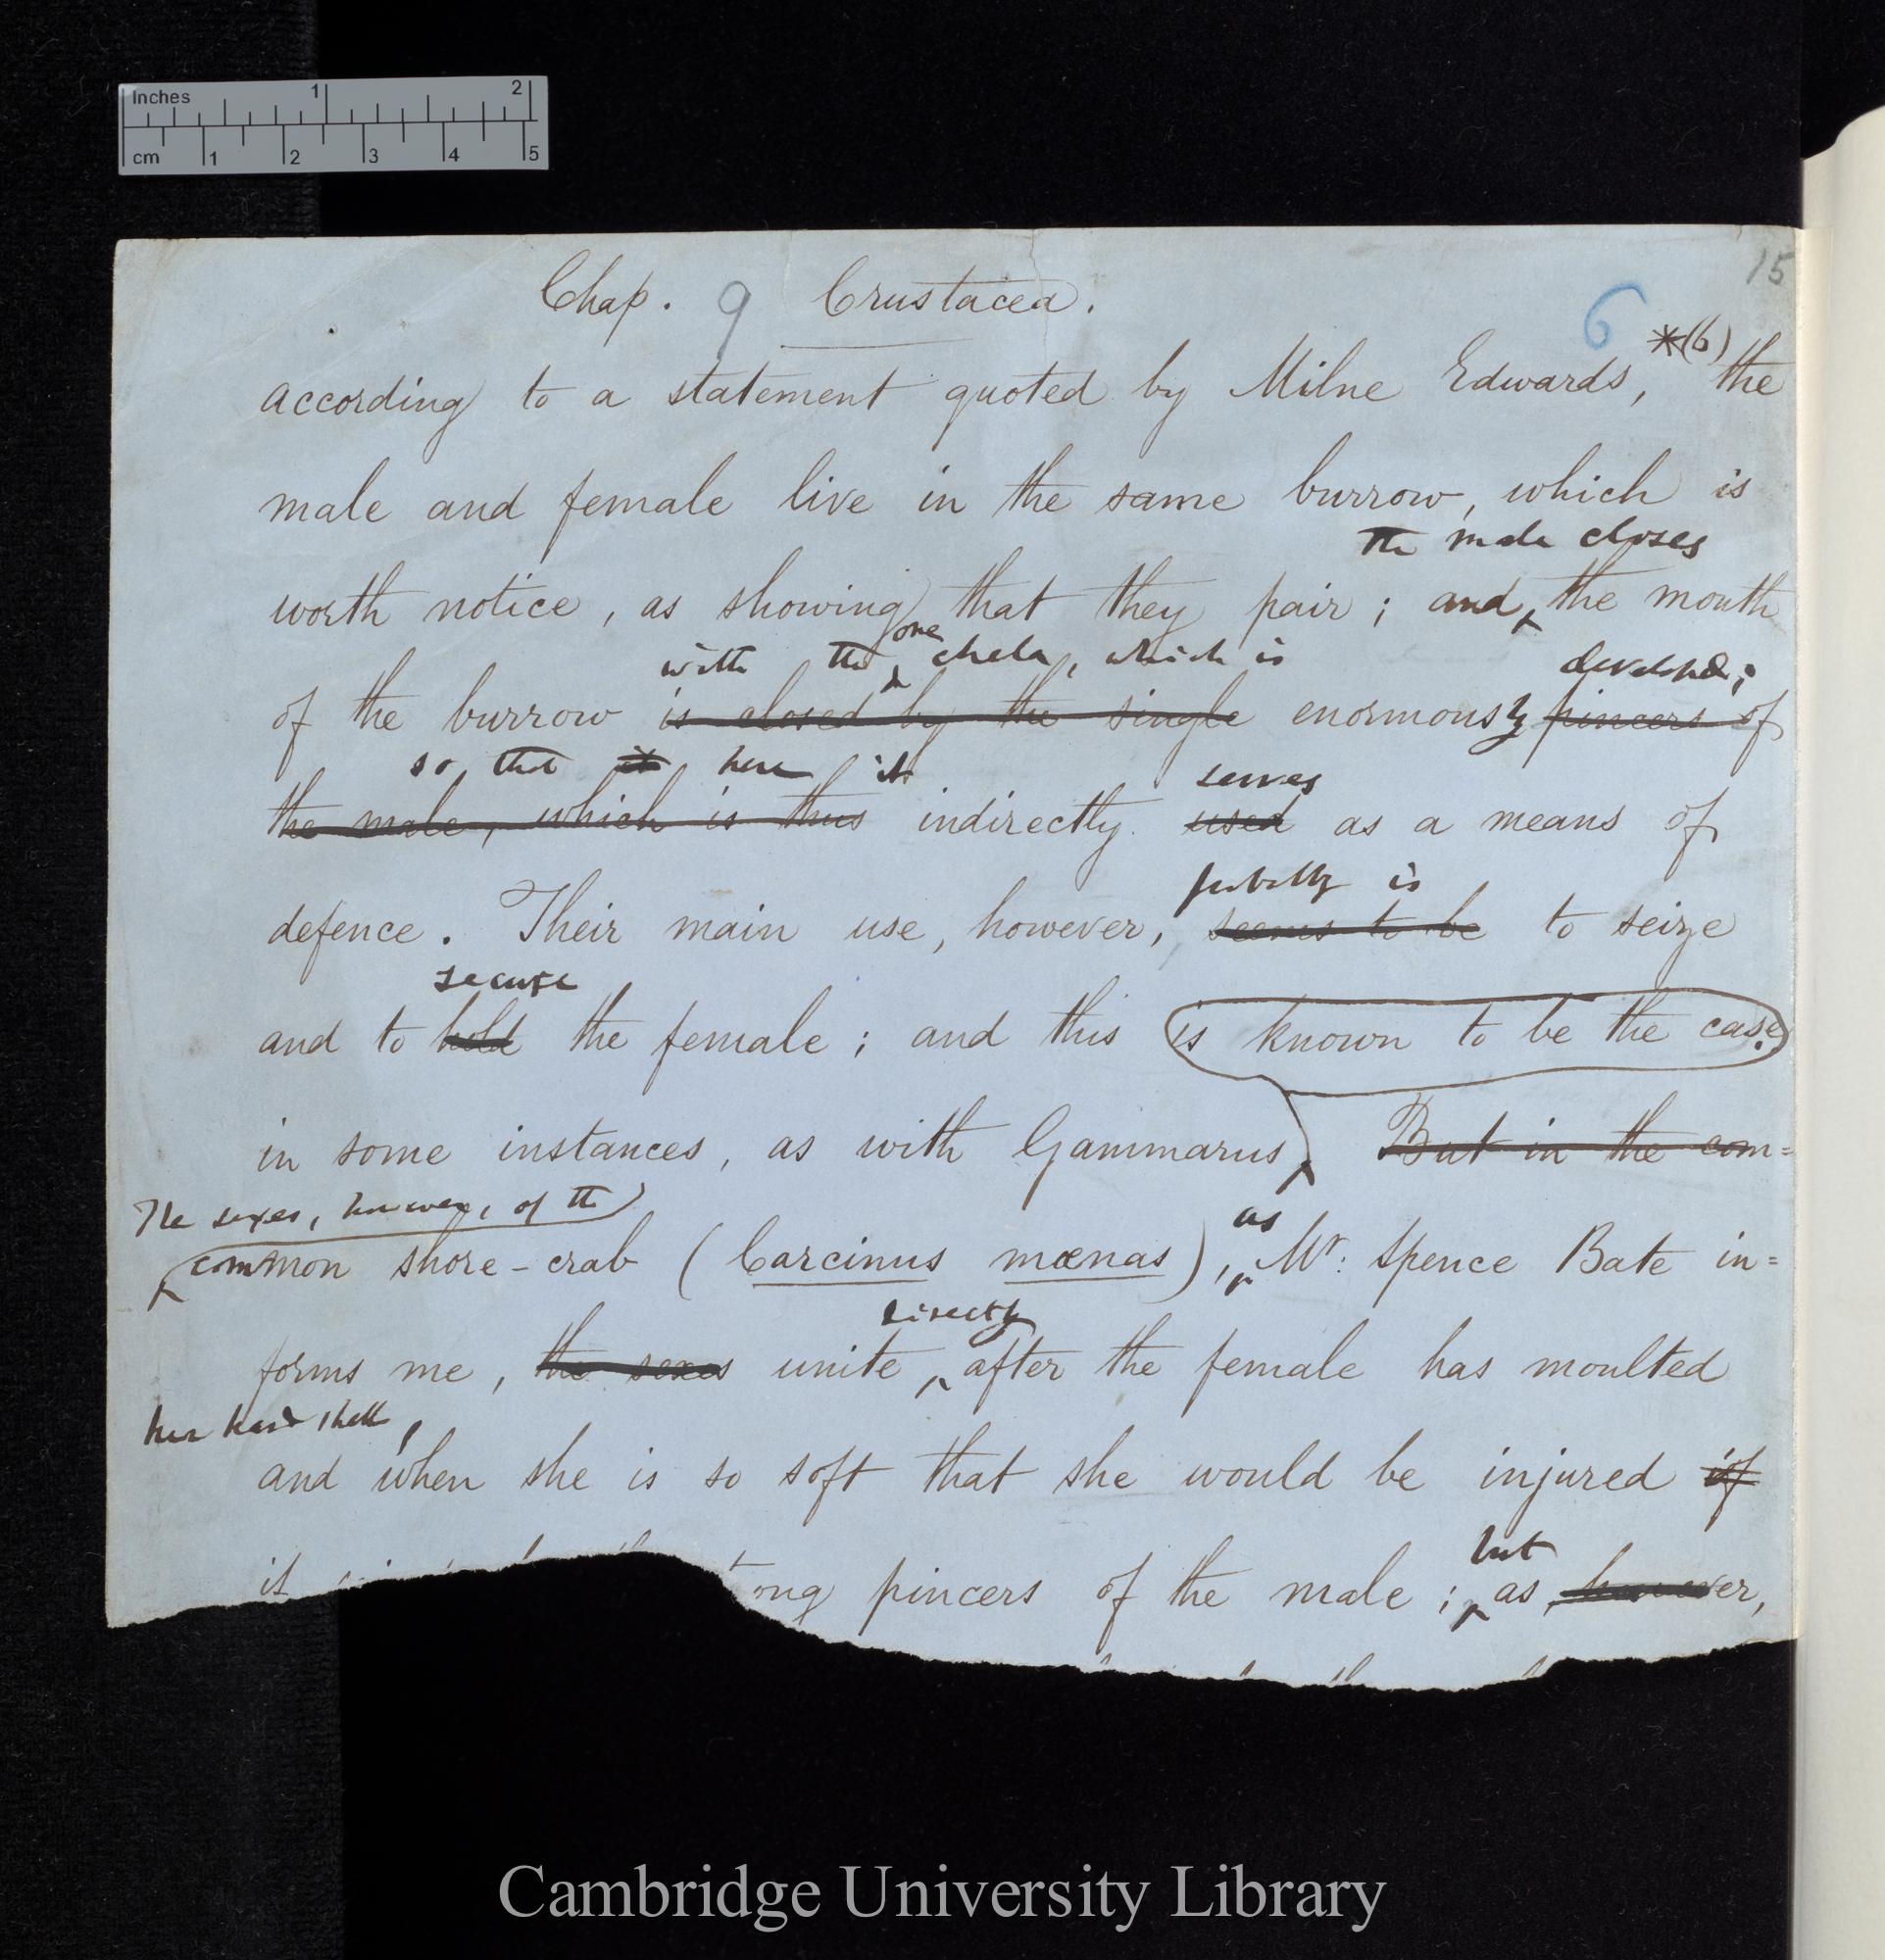 Inches 1 2
cm 1 2 3 4 5
15
Chap. 9 Crustacea.
6
*(6)
according to a statement quoted by Milne Edwards, the
male and female live in the same burrow, which is
the male closes
worth notice, as showing that they pair; and the mouth
one
with the chela, which is developed;
of the burrow is closed by the single enormously pincers of
so that it here it serves
the male, which is thus indirectly used as a means of
probably is
defence. Their main use, however, seems to be to seize
secure
and to hold the female; and this is known to be the case.
in some instances, as with Gammarus But in the com=
The sexes, however, of the as
common shore-crab (Carcinus mœnas), Mr. Spence Bate in=
directly
forms me, the sexes unite, after the female has moulted
her hard shell,
and when she is so soft that she would be injured if
but
pincers of the male; as however,
Cambridge University Library